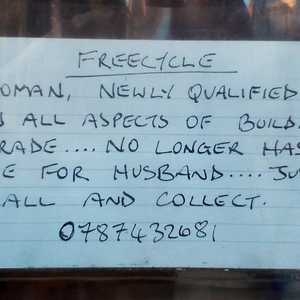 FREECYCLE
OMAN, NEWLY QUALIFIED
N ALL ASPECTS OF BUILD
RADE.... NO LONGER HAS
E FOR HUSBAND.... JU
ALL AND COLLECT.
0787432681